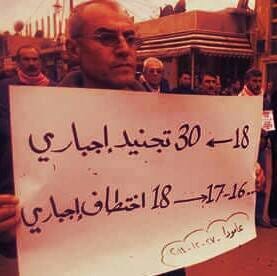 18 ← 30 تجنيد إجباري
..-16-17 ← 18 اختطاف إجباري
عامودا